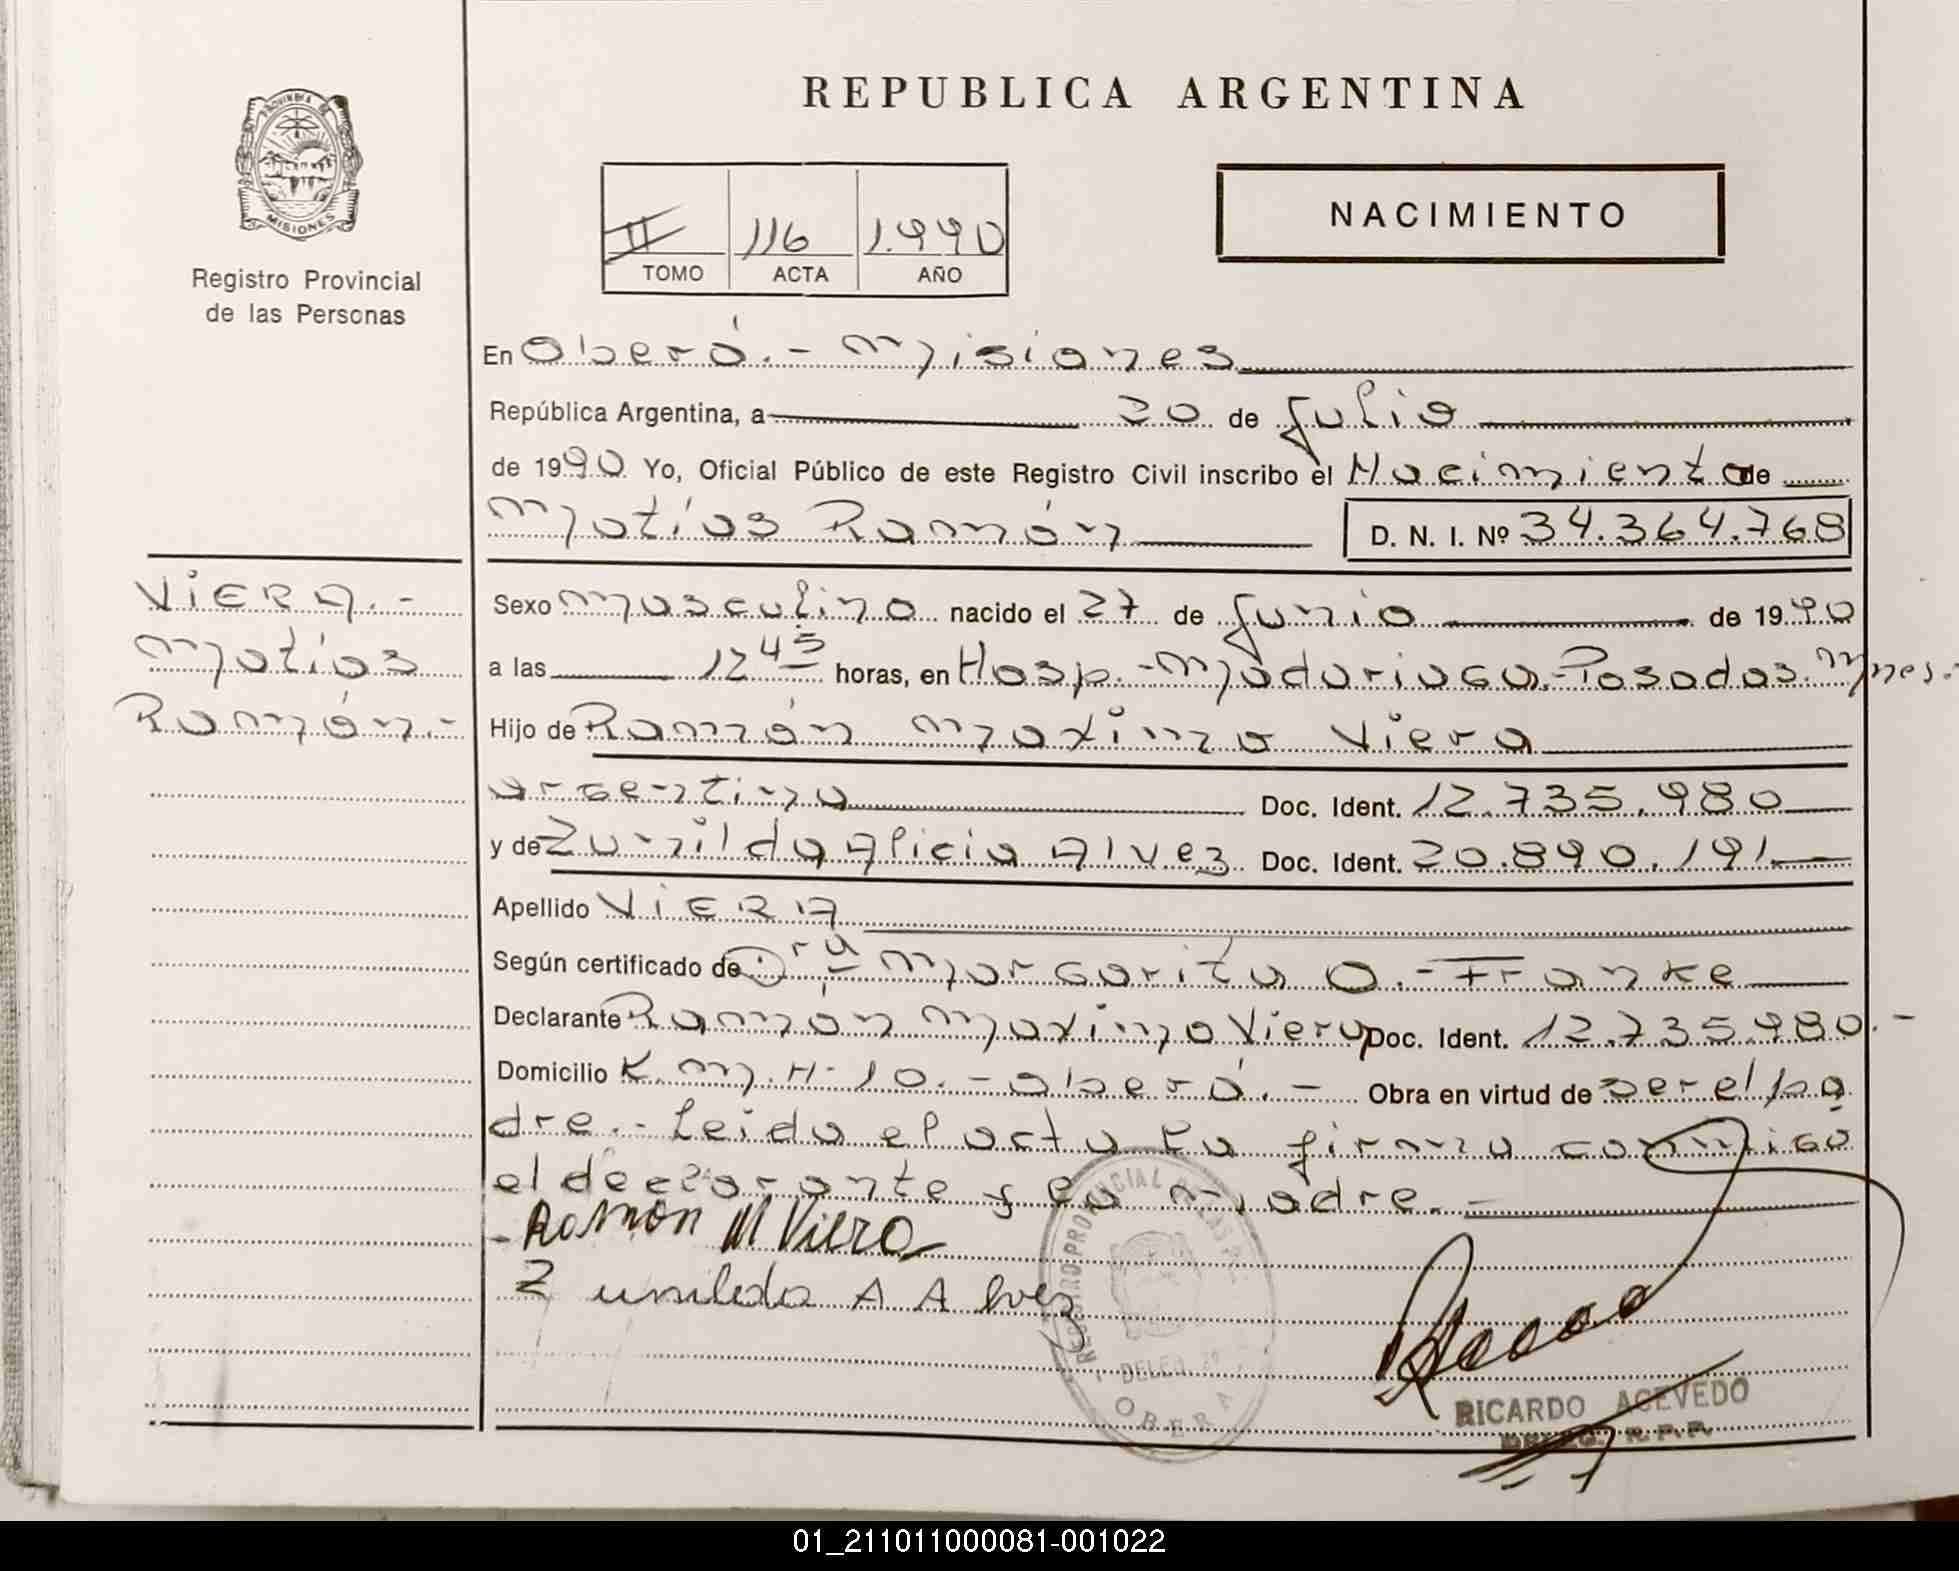 REPUBLICA ARGENTINA
PROVINCIA DE MISIONES
Registro Provincial
de las Personas
II 116 1.990
TOMO ACTA AÑO
NACIMIENTO
En Oberá.- Misiones
República Argentina, a 20 de Julio
de 1990 Yo, Oficial Público de este Registro Civil inscribo el Nacimiento de
Matías Ramón D. N. I. Nº 34.364.768
VIERA.-
Matías
Ramón.-
Sexo masculino nacido el 27 de Junio de 1990
a las 12 45 horas, en Hosp.-Madariaga.-Posadas. Mnes.-
Hijo de Ramón Maximo Viera
argentino Doc. Ident. 12.735.980
y de Zunilda Alicia Alvez Doc. Ident. 20.890.191.-
Apellido VIERA
Según certificado de Dra Margarita O.- Franke
Declarante Ramón Maximo Viera Doc. Ident. 12.735.980.-
Domicilio K.M.H-10.-Oberá.- Obra en virtud de ser el pa
dre.- Leida el acta la firma conmigo
el declarante y la madre.-
- Ramon M Viera
Zunilda A Alvez
REGISTRO PROVINCIAL DE LAS P.
DELEG.
OBERA
RICARDO ACEVEDO
DELEG. R. P. P.
01_211011000081-001022